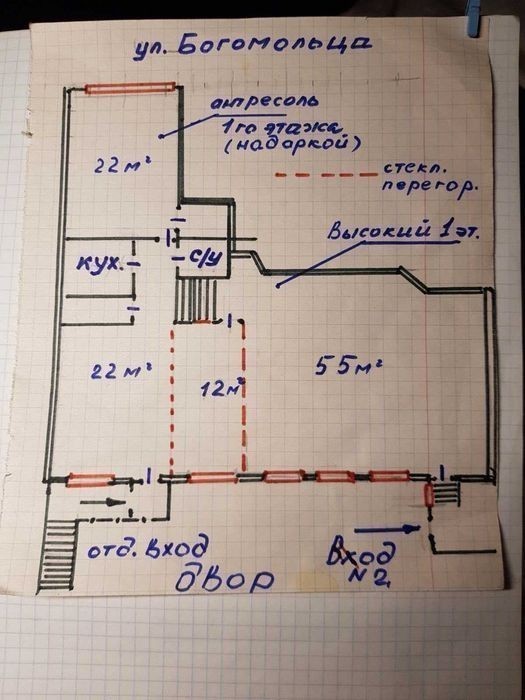 ул. Богомольца
антресоль
1го этажа
(над аркой)
22 м²
стекл.
перегор.
Высокий 1 эт.
кух.
с/у
22 м²
12 м²
55 м²
отд. вход
Вход
N 2
двор